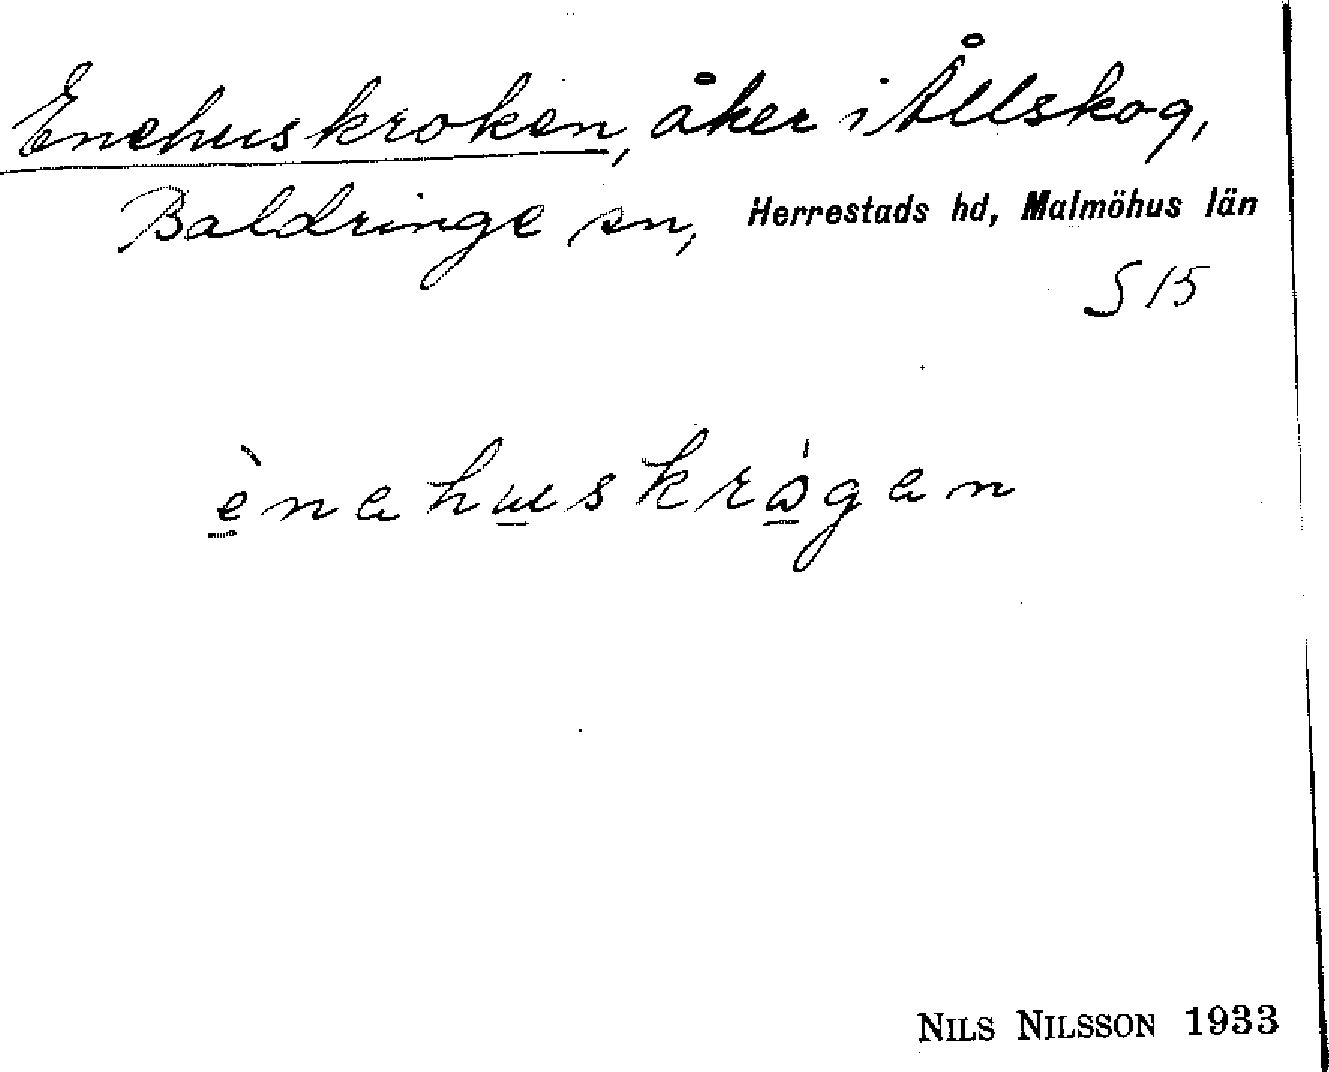 Enehuskroken, åker i Ållskog,
Baldringe sn, Herrestads hd, Malmöhus län
S 15
ènahuskrágan
NILS NILSSON 1933